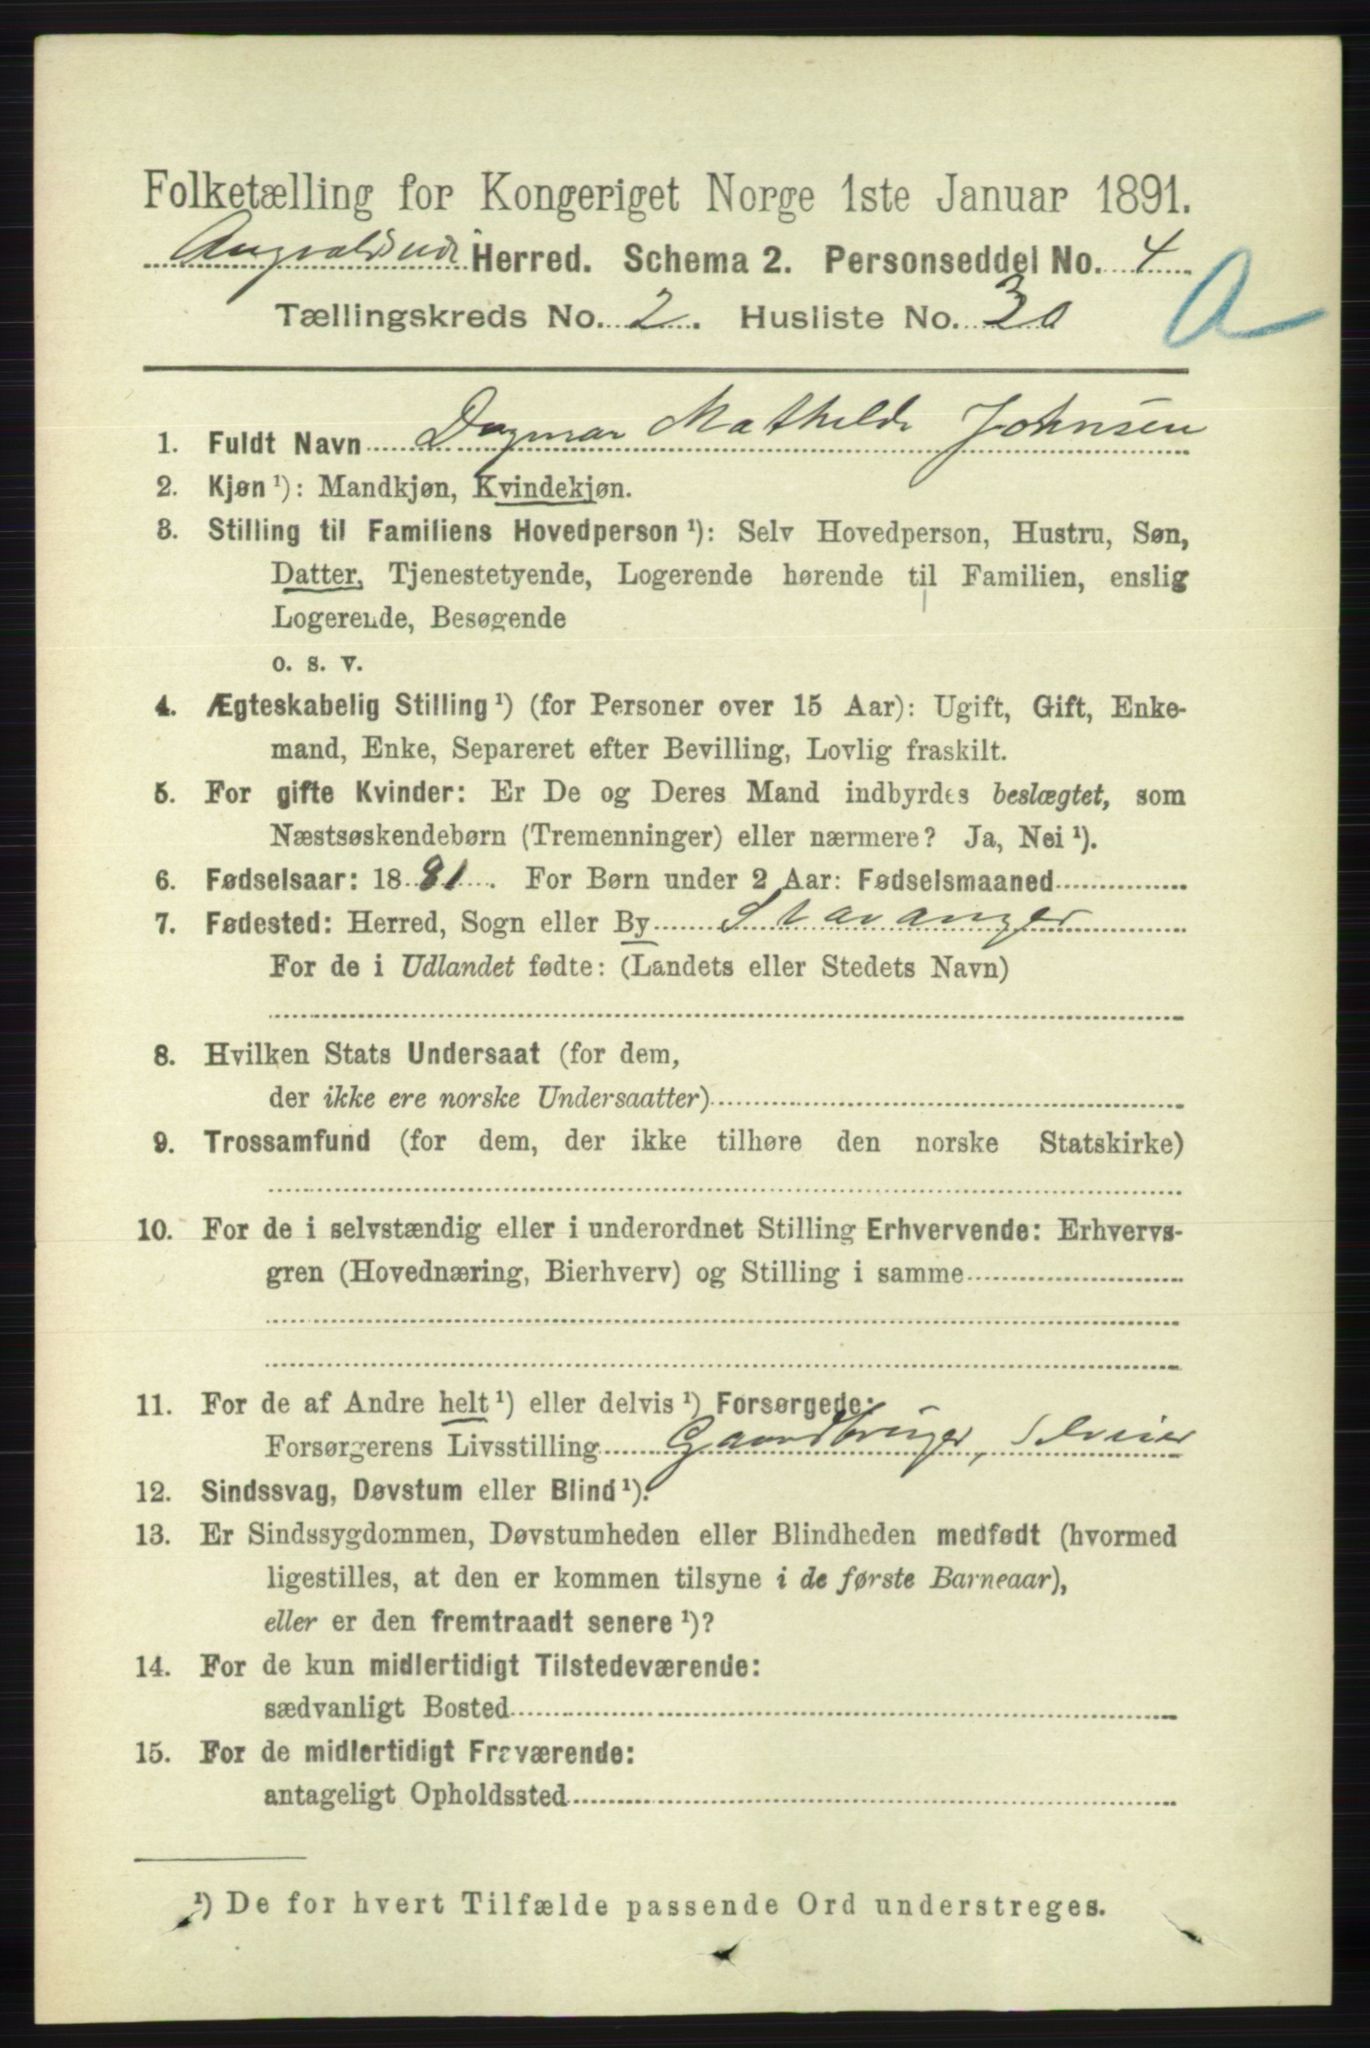 Folketælling for Kongeriget Norge 1ste Januar 1891.
Augvaldsnes Herred. Schema 2. Personseddel No. 4
A
Tællingskreds No. 2. Husliste No. 30
1. Fuldt Navn Dagmar Mathilde Johnsen
2. Kjøn ¹): Mandkjøn, Kvindekjøn.
3. Stilling til Familiens Hovedperson ¹): Selv Hovedperson, Hustru, Søn,
Datter, Tjenestetyende, Logerende hørende til Familien, enslig
Logerende, Besøgende
o. s. v.
4. Ægteskabelig Stilling ¹) (for Personer over 15 Aar): Ugift, Gift, Enke-
mand, Enke, Separeret efter Bevilling, Lovlig fraskilt.
5. For gifte Kvinder: Er De og Deres Mand indbyrdes beslægtet, som
Næstsøskendebørn (Tremenninger) eller nærmere? Ja, Nei ¹).
6. Fødselsaar: 1881. For Børn under 2 Aar: Fødselsmaaned
7. Fødested: Herred, Sogn eller By Stavanger
For de i Udlandet fødte: (Landets eller Stedets Navn)
8. Hvilken Stats Undersaat (for dem,
der ikke ere norske Undersaatter)
9. Trossamfund (for dem, der ikke tilhøre den norske Statskirke)
10. For de i selvstændig eller i underordnet Stilling Erhvervende: Erhvervs-
gren (Hovednæring, Bierhverv) og Stilling i samme
11. For de af Andre helt ¹) eller delvis ¹) Forsørgede:
Forsørgerens Livsstilling Gaardbruger, Selveier
12. Sindssvag, Døvstum eller Blind ¹).
13. Er Sindssygdommen, Døvstumheden eller Blindheden medfødt (hvormed
ligestilles, at den er kommen tilsyne i de første Barneaar),
eller er den fremtraadt senere ¹)?
14. For de kun midlertidigt Tilstedeværende:
sædvanligt Bosted
15. For de midlertidigt Fraværende:
antageligt Opholdssted
¹) De for hvert Tilfælde passende Ord understreges.